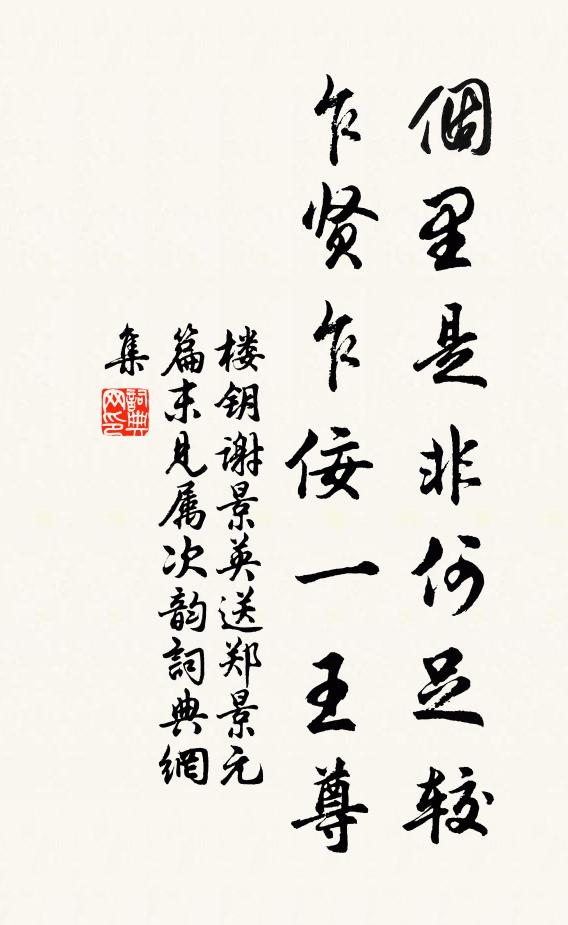 個里是非何足较
乍贤乍佞一王尊
楼钥谢景英送郑景元
篇末见属次韵詞典網
集
詞典
网印